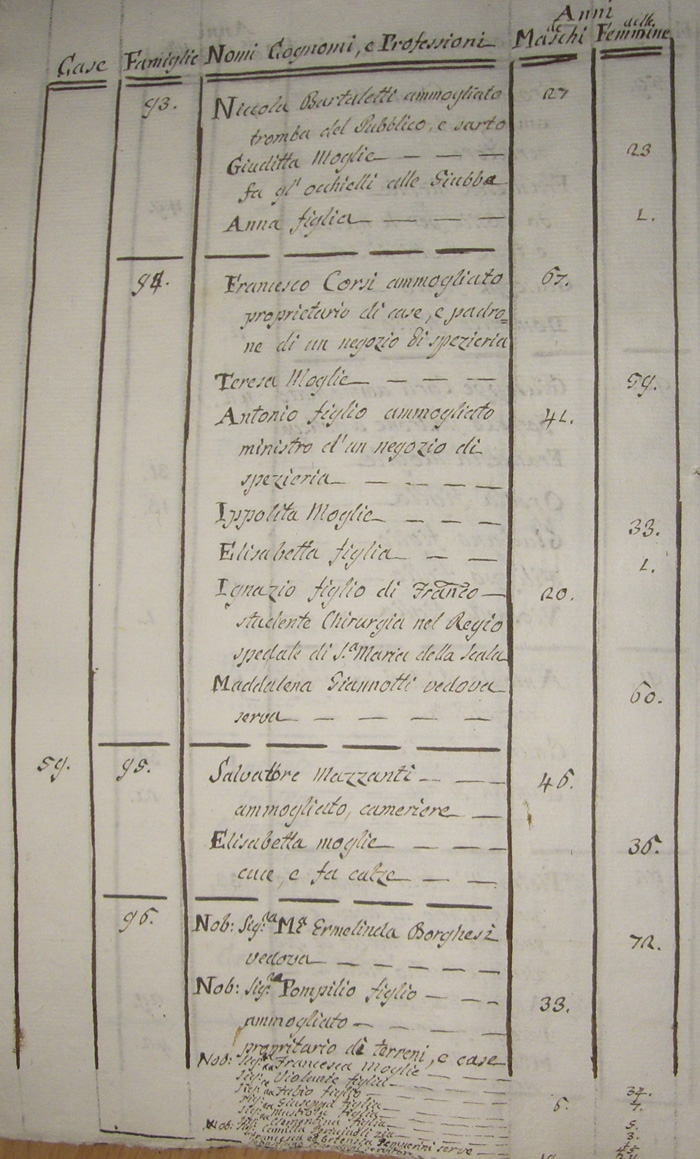 Anni
Case Famiglie Nomi Cognomi, e Professioni de Maschi delle Femmine
93. Niccola Bartaletti ammogliato 27
tromba del Pubblico, e sarto
Giuditta Moglie — — — 23
fa gl' occhielli alle Giubbe
Anna figlia — — — — 1.
94. Francesco Corsi ammogliato 67.
proprietario di case, e padro=
ne di un negozio di spezieria
Teresa Moglie — — — — 59.
Antonio figlio ammogliato 41.
ministro d'un negozio di
spezieria — — — — —
Ippolita Moglie — — — 33.
Elisabetta figlia — — — 1.
Ignazio figlio di Franco — 20.
studente Chirurgia nel Regio
spedale di S.a Maria della Scala
Maddalena Giannotti vedova 60.
serva — — — —
59. 95. Salvatore Mazzanti — — 46.
ammogliato, cameriere —
Elisabetta moglie — — — 36.
cuce, e fa calze — — —
96. Nob: Sig.ra M.a Ermelinda Borghesi 72.
vedova — — — — —
Nob: Sig.r Pompilio figlio — — — 33.
ammogliato — — — —
propritario di terreni, e case
Nob: Sig.ra Francesca Moglie
Sig.ra Violante figlia
Fabio figlio
Giuseppa figlia
Clementina figlia
Nob: Camilla